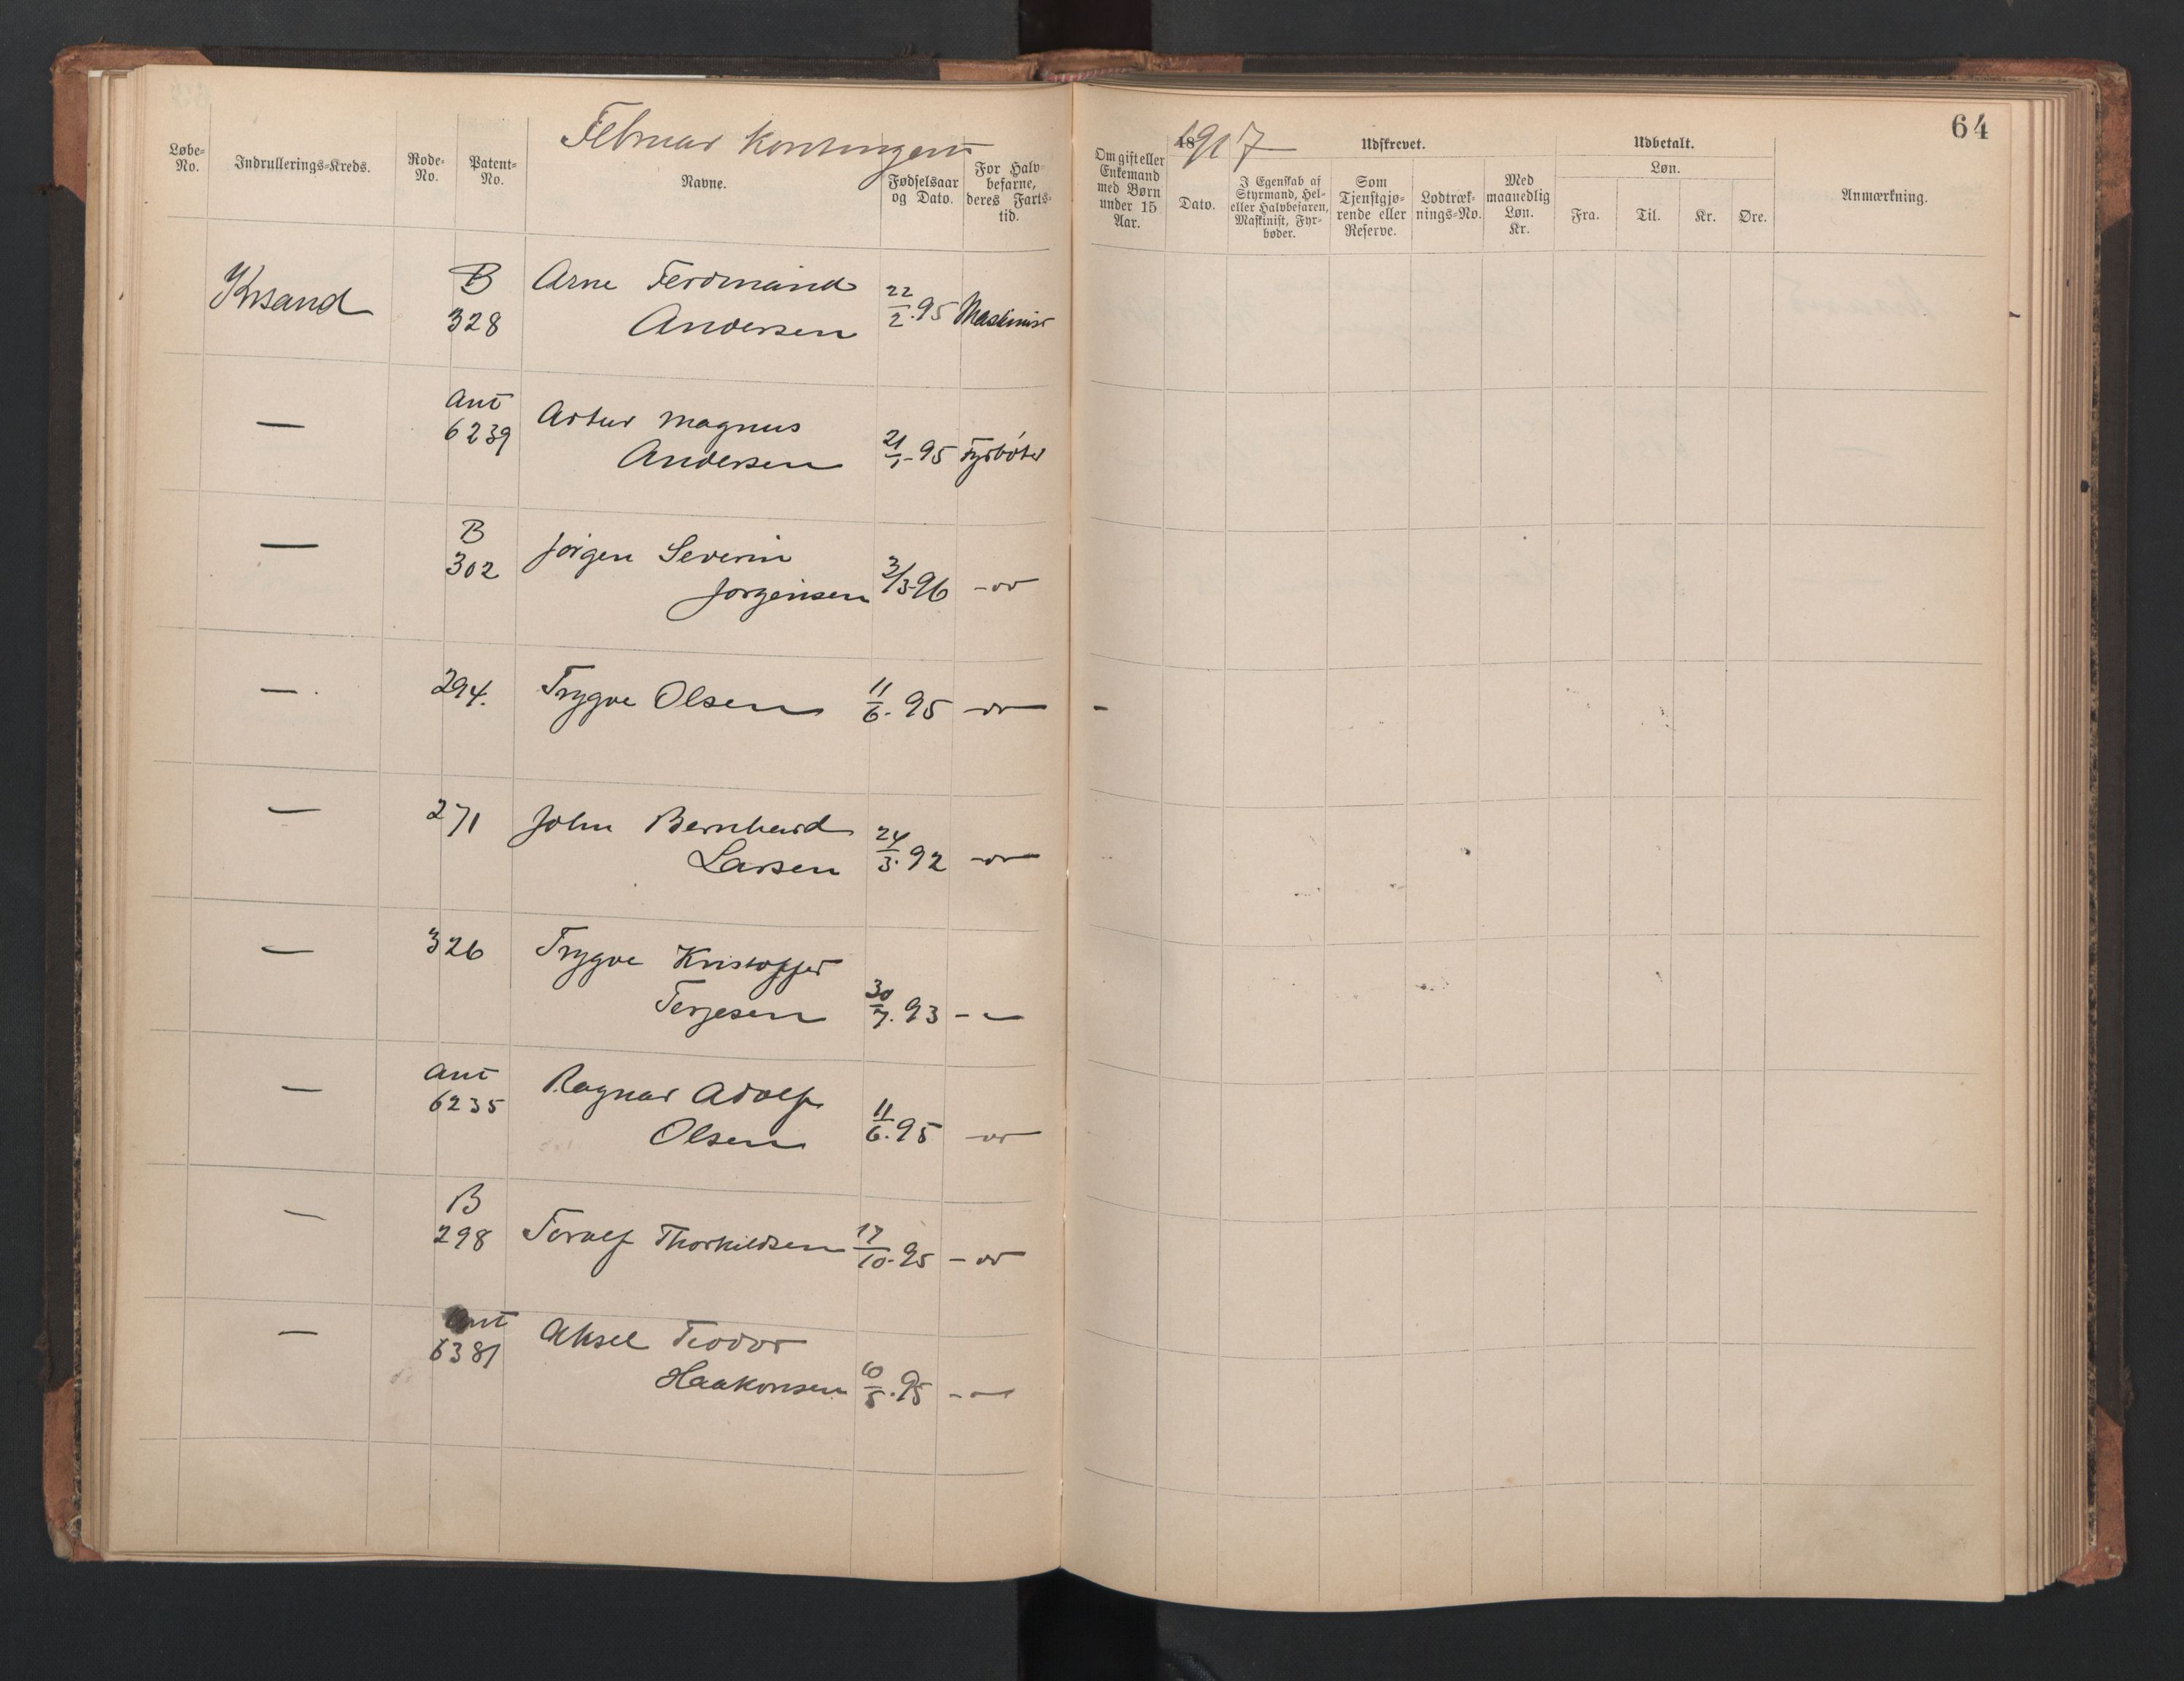 Februar Kontingent
Løbe-
No.
Indrullerings-Kreds.
Rode-
No.
Patent-
No.
Navne.
Fødselsaar
og Dato.
For Halv-
befarne,
deres Farts-
tid.
Krsand
B
328
Arne Ferdinand
Andersen
22/2. 95
Maskinist
—
Ant
6239
Artur Magnus
Andersen
21/1- 95
Fyrbøter
—
B
302
Jørgen Severin
Jørgensen
3/3-96
-"-
—
294.
Trygve Olsen
11/6. 95
-"-
—
271
John Bernhard
Larsen
24/3. 92
-"-
—
326
Trygve Kristoffer
Terjesen
30/7. 93
-"-
—
Ant
6235
Ragnar Adolf
Olsen
11/6. 95
-"-
—
B
298
Torolf Thorkildsen
17/10. 95
-"-
—
Ant
6381
Aksel Teodor
Haakonsen
10/5. 95
-"-
64
Om gift eller
Enkemand
med Børn
under 15
Aar.
1917
Udskrevet.
Dato.
I Egenskab af
Styrmand, Hel-
eller Halvbefaren,
Maskinist, Fyr-
bøder.
Som
Tjenstgjø-
rende eller
Reserve.
Lodtræk-
nings-No.
Med
maanedlig
Løn.
Kr.
Udbetalt.
Løn.
Fra.
Til.
Kr.
Øre.
Anmærkning.